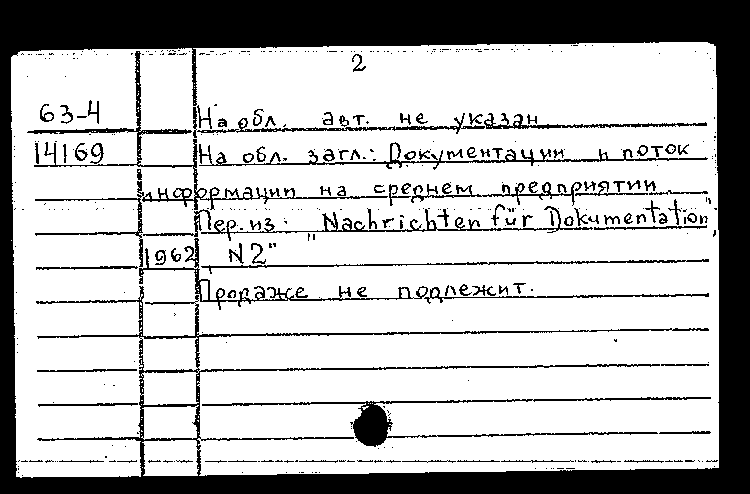 2
63-4 На обл. авт. не указан
14169 На обл. загл.: Документации и поток
информации на среднем предприятии.
Пер. из: "Nachrichten für Dokumentation",
1962, N2"
Продаже не подлежит.